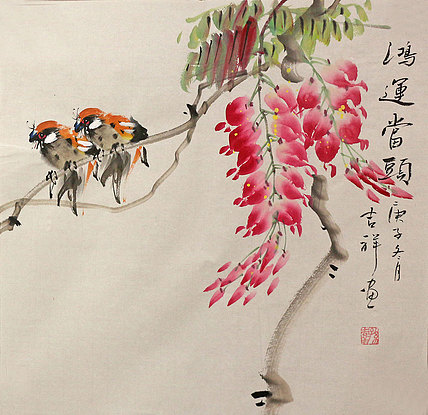 鴻運當頭
庚子冬月
吉祥畫